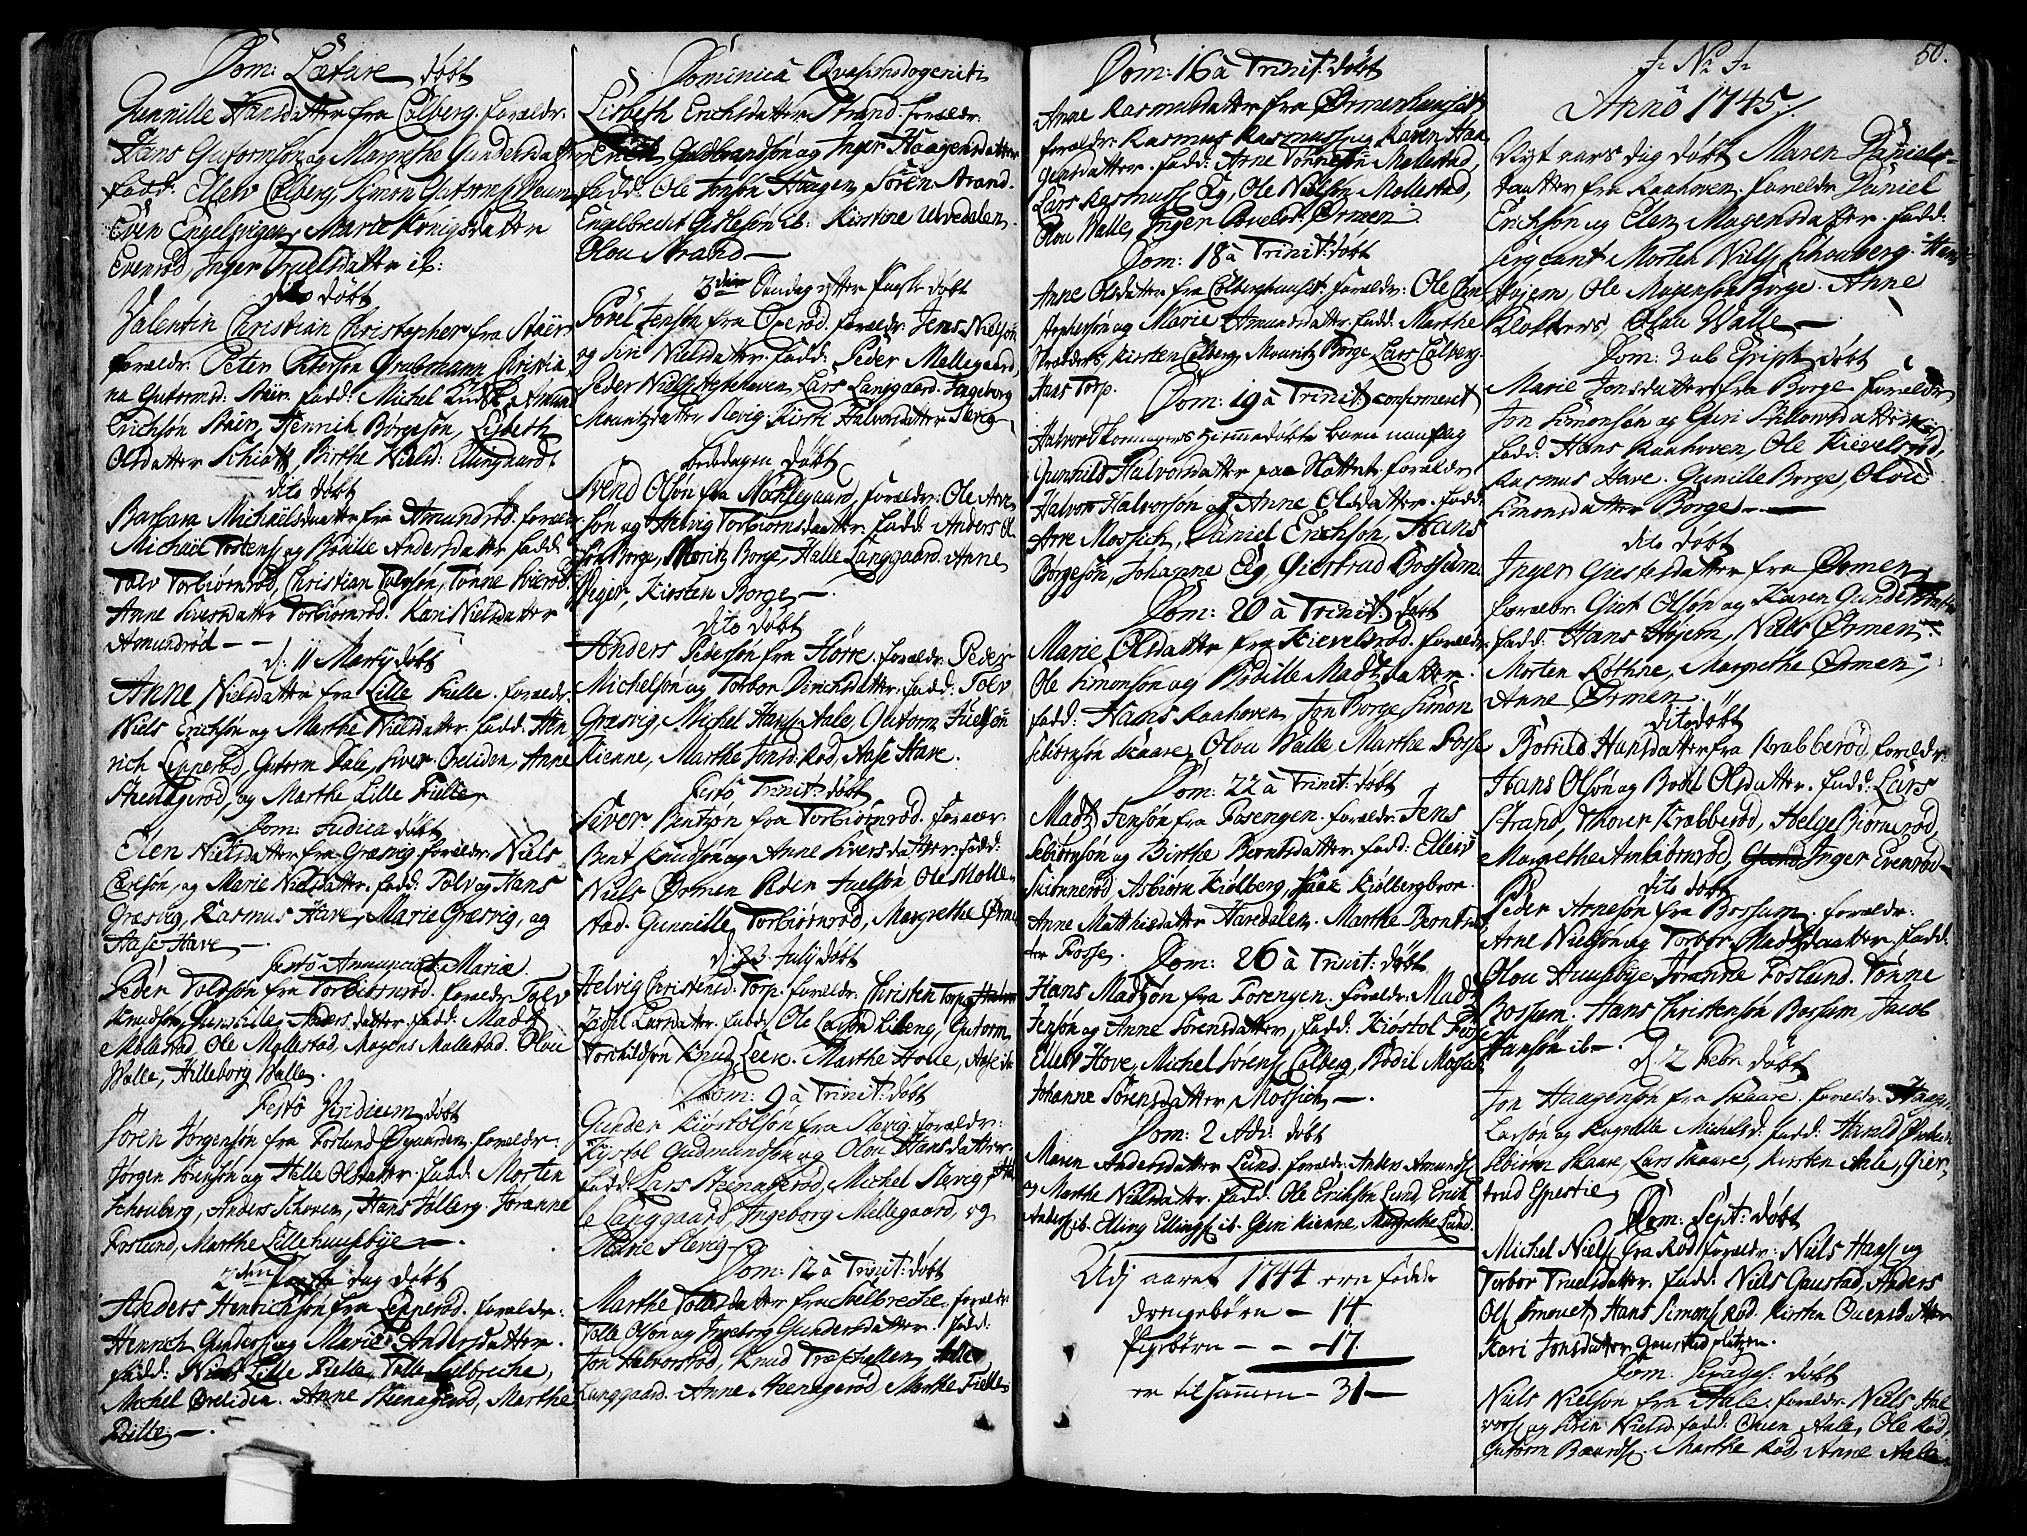 Dom: Lætare døbt
Gunnille Hansdatter fra Colberg. forældr:
Hans Gutormsøn og Margrethe Gundersdatter
fadd: Ellev Colberg, Simon Gutorms: Veum
Even Engelsvigen, Marie Königsdatter
Evenrød, Inger Truelsdatter ib:
dito døbt
Valentin Christian Christopher fra Stüer
forældr: Peter Peterson Grabmann, Christia-
na Gutormsd: Stüer. fadd: Michel Amund
Erichsøn Stüer, Henrich Børgesøn, Lisbeth
Olsdatter Schiøtt, Birthe Nielsd: Ellinggaard
dito døbt
Barbara Michaëlsdaatter fra Aamundrød. forældr
Michael Tostens: og Bodille Andersdatter fadd:
Tolv Torbiørnrød, Christian Tolvsøn, Tønne
Anne Siversdatter Torbiørnrød. Kari Nielsdatter
Aamundrød —
d: 11 Martij døbt
Anne Nielsdatter fra Lille Fielle. forældr:
Niels Erichsøn og Marthe Nielsdatter. fadd: Hen
rich Lepperød, Gutorm Dale, Siver Oreliden, Anne
Steenagerød, og Marthe Lille Fielle
Dom: Judica døbt
Elen Nielsdatter fra Græsvig. forældr: Niels
Carlsøn, og Marie Nielsdatter. fadd: Tolv og Hans
Græsvig, Rasmus Have, Marie Græsvig, og
Aase Have —.
Festo Annunciat: Mariæ.
Peder Tolvsøn fra Torbiørnrød. forældr: Tolv
Knudsøn, Gunnille Andersdatter. fadd: Madz
Møllestad Ole Møllestad, Mogens Møllestad. Olou
Walle, Hilleborg Walle.
Festo Viridium døbt
Søren Jørgensøn fra Foslund Øgaarden. forældr:
Jørgen Joensøn og Helle Olsdatter. fadd: Morten
Schouberg, Anders Schoven, Hans Solberg. Joranne
Foslund, Marthe Lillehuusbye —.
2den Paaske dag døbt
Anders Henrichsøn fra Lepperød. forældr:
Henrich Gunders: og Marie Andersdatter.
fadd: Niels Lille Fielle, Tolle Sælbreche,
Michel Oreliden. Anne Steenagerød, Marthe
Fielle —.
Dominica Qvasimodogeniti
Lisbeth Erichsdatter Strand. forældr:
Erich Guldbrandsøn og Inger Haagensdatter
fadd: Ole Jonsøn Haugen, Søren Strand.
Engelbrecht Gislesøn ib: Kirstine Ulvedalen.
Olou Strand —
3die Søndag efter Paaske døbt
Povel Jensøn fra Operød. forældr: Jens Nielsøn
og Siri Nielsdatter. fadd: Peder Mellegaard,
Peder Niels: Løchehaven, Lars Langgaard. Ingeborg
Mouritzdatter Slevig. Kirsti Halvorsdatter Slevig
bededagen døbt
Svend Olsøn fra Nøhlegaard, forældr: Ole Arve
søn og Helvig Torbiørnsdaatter. fadd: Anders Ol
søn Borge, Moritz Borge, Halle Langgaard. Anne
Veger, Kirsten Borge —.
dito døbt
Anders Pedersøn fra Hørre. forældr: Peder
Michelsøn og Torbor Erichsdatter. fadd: Tolv
Græsvig, Michel Hans: Aale, Gutorm Juelsøn
Kienne, Marthe Jonsd: Rød, Aase Have.
Festo Trinit: døbt
Siver Bentsøn fra Torbiørnrød. forældr:
Bent Knudsøn og Anne Siversdatter. fadd:
Niels Ørmen Peder Juelsøn Ole Molle-
stad. Gunnille Torbiørnrød, Margrethe Ørmen
d: 23 Julij døbt
Helvig Christensd: Torp. forældr: Christen Torp
Larsdatter. fadd: Ole Larsøn Liberg, Gutorm
Torchildsøn Knud Leen. Marthe Hove, Aase ib
Dom: 9 à Trinit: døbt
Gunder Kiøstolsøn fra Slevig forældr:
Kiøstol Gudmundsøn og Olou Hansdatter
fadd: Lars Steenagerød, Michel Slevig
Langgaard, Ingeborg Mellegaard, og
Marie Slevig
Dom: 12 à Trinit: døbt
Marthe Tollesdatter fra Sælbreche. forældr
Tolle Olsøn og Ingeborg Gundersdatter. fadd:
Jon Halvorsrød, Knud Træschallen, Halle
Langgaard. Anne Steenagerød, Marthe Fielle
Dom: 16 à Trinit: døbt
Anne Rasmusdatter fra Ørmenhaugset
forældr: Rasmus Rasmus: og Karen Haa
gensdatter. fadd: Arne Tønnesøn Mollestad,
Lars Rasmus: Eg, Ole Nielsøn Mollestad,
Olou Walle, Inger Ørmen.
Dom: 18 à Trinit: døbt
Anne Olsdatter fra Colberghauset: forældr: Ole Chri
stophersøn og Marie Amundsdatter. fadd: Marthe
Kirsten Colberg, Mouritz Borge Lars Colberg.
Hans Torp.
Dom: 19 à Trinit: confirmeret
Halvord hiemmedøbte barn naufnlig
Gunhild Halvorsdatter paa Slottet. forældr:
Halvor Halvorsøn og Anne Olsdatter. fadd:
Arve Mossich, Daniel Erichsøn, Hans
Borgesøn, Johanne Eg, Giertrud Bossum.
Dom: 20 à Trinit: døbt
Marie Olsdatter fra Kievelsrød. forældr:
Ole Simonsøn og Bodille Madtzdatter.
fadd: Hans Raahoven Jon Borge Simon
Sebiørnsøn Skaare, Olou Walle Marthe Fosse
Dom: 22 à Trinit: døbt
Madtz Jensøn fra Fosengen. forældr: Jens
Sebiørnsøn og Birthe Berntsdatter. fadd: Ellev
Skiønnerød Asbiørn Kiølberg, Kiølbergbroe.
Anne Matthisdatter Haredalen. Marthe Berntsd
ter Fosse.
Dom: 26 à Trinit: døbt
Hans Madsøn fra Fosengen. forældr: Madtz
Jensøn og Anne Sørensdatter, fadd: Kiøstol Fosse
Ellev Hove, Michel Sørens: Colberg, Bodil Mossich
Johanne Sørensdatter, Mossich —.
Dom: 2 Adv: døbt
Maren Andersdatter Lund. forældr: Anders Amunds:
og Marthe Nielsdatter. fadd: Ole Erichsøn Lund, Erich
Anders: ib. Elling Ellings: ib. Guri Kienne, Margrethe Lund.
Udj aaret 1744 ere fødde
drengebørn — 14
Pigebørn — — 17.
er tilsammen — 31 —
50.
J: N: J:
Anno 1745/.
Nyt aars dag døbt Maren Daniels-
daatter fra Raahoven. forældr: Daniel
Erichsøn og Elen Mogensdatter. fadd:
Sergeant Morten Niels: Schouberg. Hans
Hyjem, Ole Mogensøn Borge. Anne
Klokkers, Olou Walle —
Dom: 3 ab Epiph: døbt
Marie Jonsdatter fra Borge forældr
Jon Simonsøn og Guri
fadd: Hans Raahoven, Ole Kievelsrød,
Rasmus Have. Gunille Borge, Olou
Simonsdatter Borge —
dito døbt
Inger Giestsdatter fra Ørmen
forældr: Giest Olsøn og Karen Gundersdatter
fadd: Hans Hyjem, Niels Ørmen.
Morten Røthne, Margrethe Ørmen,
Anne Ørmen.
dito døbt
Hansdatter fra Krabberød, forældr:
Hans Olsøn og Bodil Olsdatter. fadd: Lars
Strand, Thover Krabberød, Helge Biørnerød,
Margrethe Ambiørnrød, Inger Evenrød
dito døbt
Peder Arnesøn fra Bossum. forældr:
Arne Nielsøn og Torbor Madtzdaatter. fadd:
Olou Huusbye Joranne Foslund. Tønne
Bossum. Hans Christensøn Bossum, Jacob
Hansøn ib —.
d: 2 Febr: døbt
Jon Haagensøn fra Skaare. forældr: Haagen
Larsøn og Ragnille Michelsd: fadd: Harald
Sebiørn Skaare, Lars Skaare, Kirsten Aale, Gier
trud Gjestie,
Dom: Sept: døbt
Michel Niels: fra Rød forældr: Niels Hans: og
Torbor Truelsdatter. fadd: Niels Gaustad, Anders
Ols: Smouet, Hans Simons: Rød. Kirsten Ouensdatter
Kari Jonsdatter Gaustadpladsen.
Dom: Sexages: døbt
Niels Nielsøn fra Aale. forældr: Niels Hal
vors: og Siren Nielsd: fadd: Ouen Aale, Ole Rød,
Gutorm Baards: Marthe Rød, Anne Aale